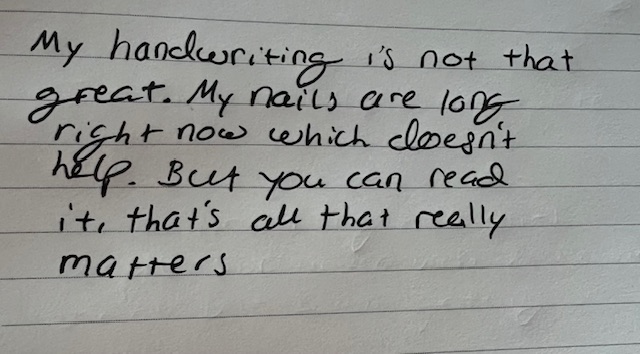 My handwriting is not that
great. My nails are long
right now which doesn't
help. But you can read
it, that's all that really
matters